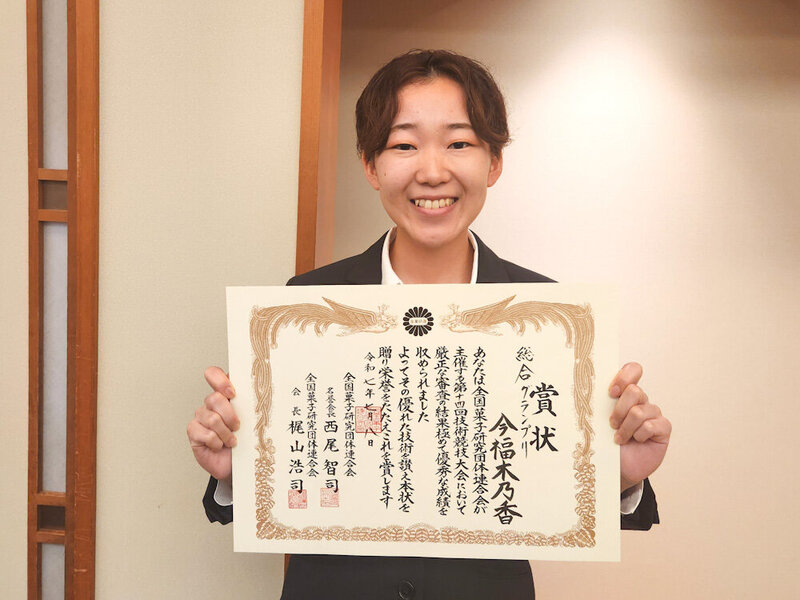 賞状
総合グランプリ
今福木乃香
あなたは全国菓子研究団体連合会が
主催する第十四回技術競技大会において
厳正な審査の結果極めて優秀な成績を
収められました
よってその優れた技術を讃え本状を
贈り栄誉をたたえこれを賞します
令和七年七月八日
全国菓子研究団体連合会
名誉会長 西尾智司
全国菓子研究団体連合会
会長 梶山浩司